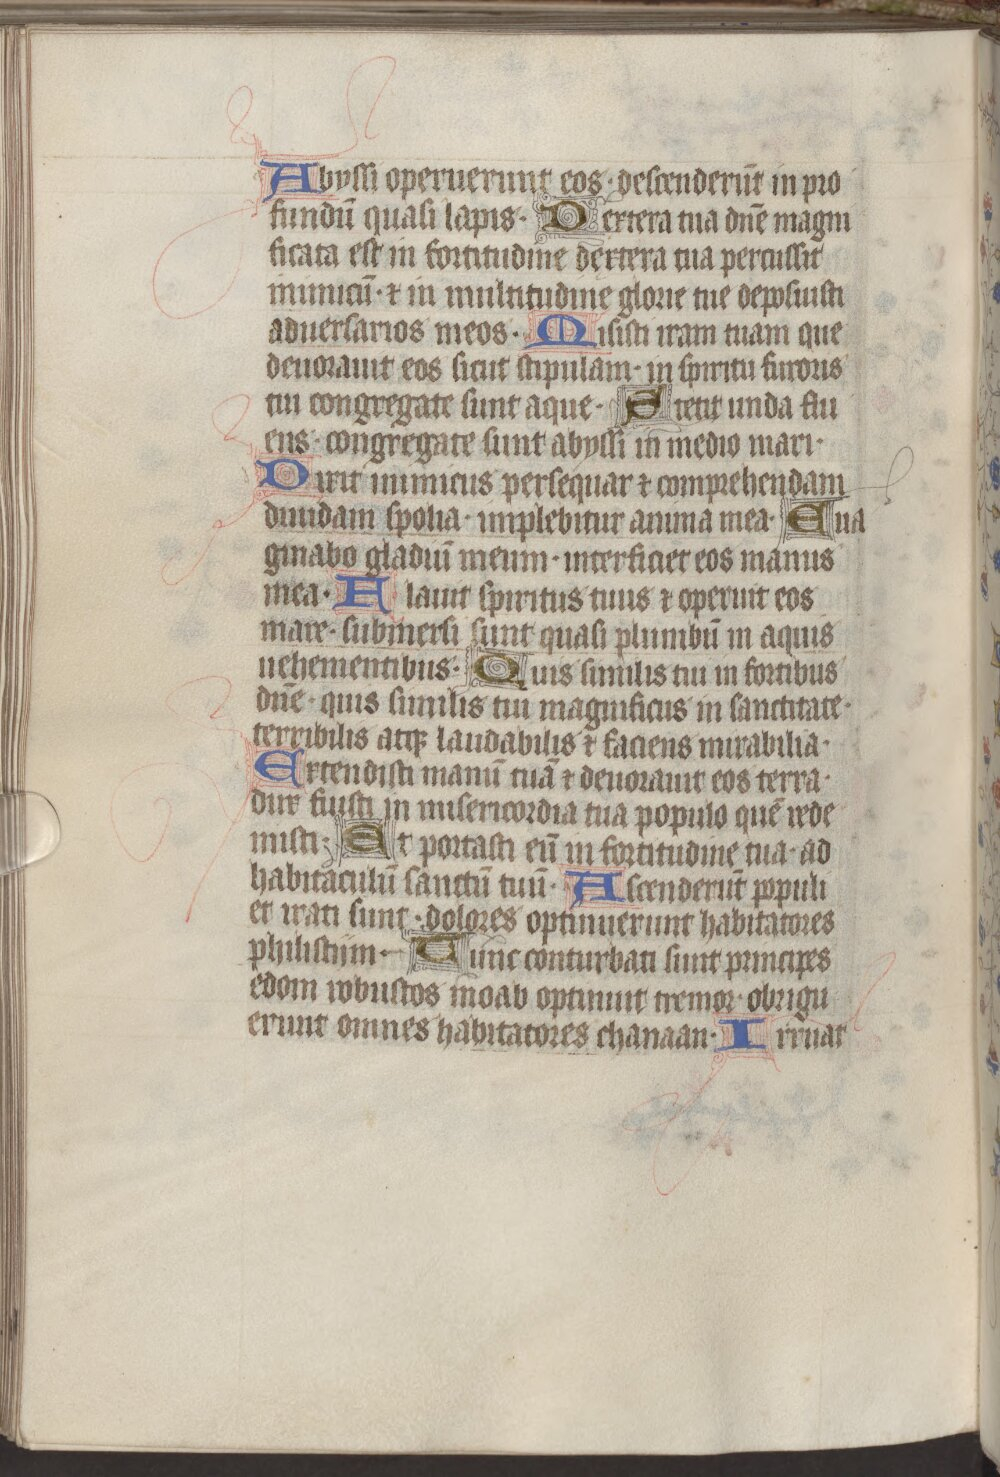 Abyssi operuerunt eos · descenderūt in pro
fundū quasi lapis · Dextera tua dn̄e magni
ficata est in fortitudine dextera tua percussit
inimicū · ⁊ in multitudine glorie tue deposuisti
aduersarios meos · Misisti iram tuam que
deuorauit eos sicut stipulam · in spiritu furoris
tui congregate sunt aque · Stetit unda flu
ens · congregate sunt abyssi in medio mari ·
Dixit inimicus persequar ⁊ comprehendam
diuidam spolia · implebitur anima mea · Eua
ginabo gladiū meum · interficiet eos manus
mea · Flauit spiritus tuus ⁊ operuit eos
mare · submersi sunt quasi plumbū in aquis
uehementibus · Quis similis tui in fortibus
dn̄e · quis similis tui magnificus in sanctitate ·
terribilis atqꝫ laudabilis ⁊ faciens mirabilia ·
Extendisti manū tuā ⁊ deuorauit eos terra ·
dux fuisti in misericordia tua populo quē rede
misti ; Et portasti eū in fortitudine tua · ad
habitaculū sanctū tuū · Ascenderūt populi
et irati sunt · dolores optinuerunt habitatores
philistijm · Tunc conturbati sunt principes
edom robustos moab optinuit tremor · obrigu
erunt omnes habitatores chanaan · Irruat